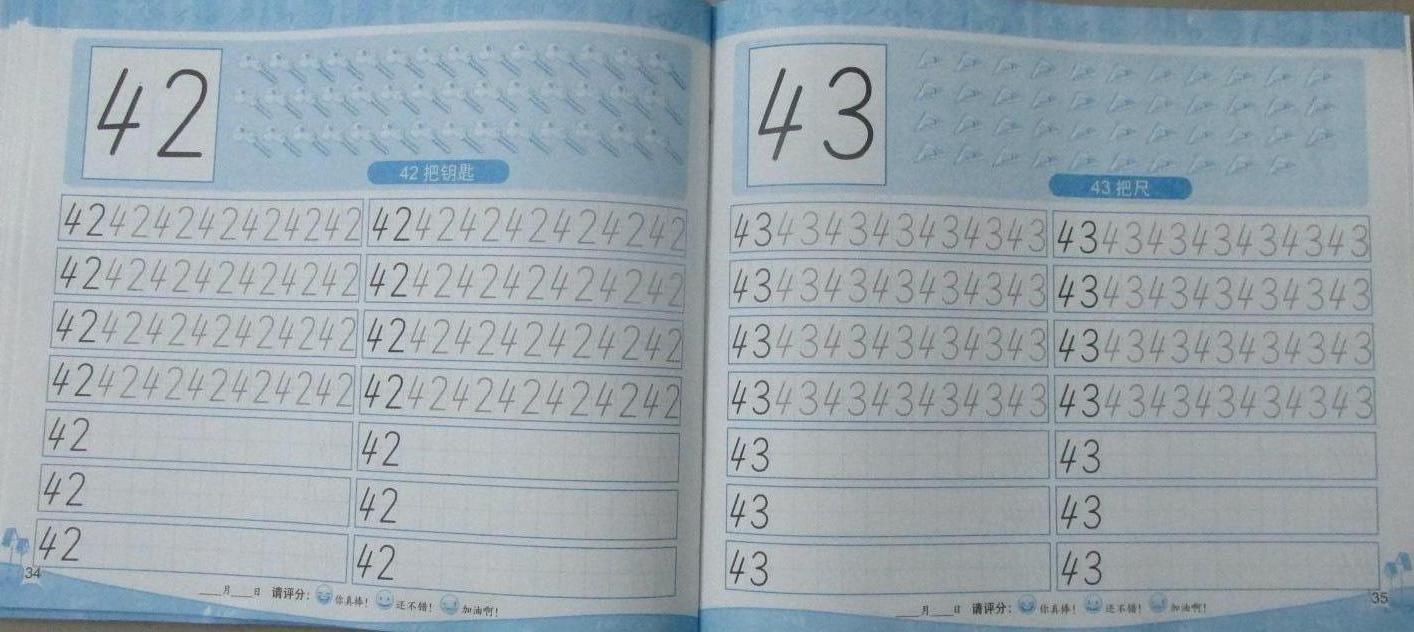 42
42把钥匙
42424242424242 42424242424242
42424242424242 42424242424242
42424242424242 42424242424242
42424242424242 42424242424242
42 42
42 42
42 42
34
____月____日 请评分: 你真棒! 还不错! 加油啊!
43
43把尺
43434343434343 43434343434343
43434343434343 43434343434343
43434343434343 43434343434343
43434343434343 43434343434343
43 43
43 43
43 43
____月____日 请评分: 你真棒! 还不错! 加油啊!
35